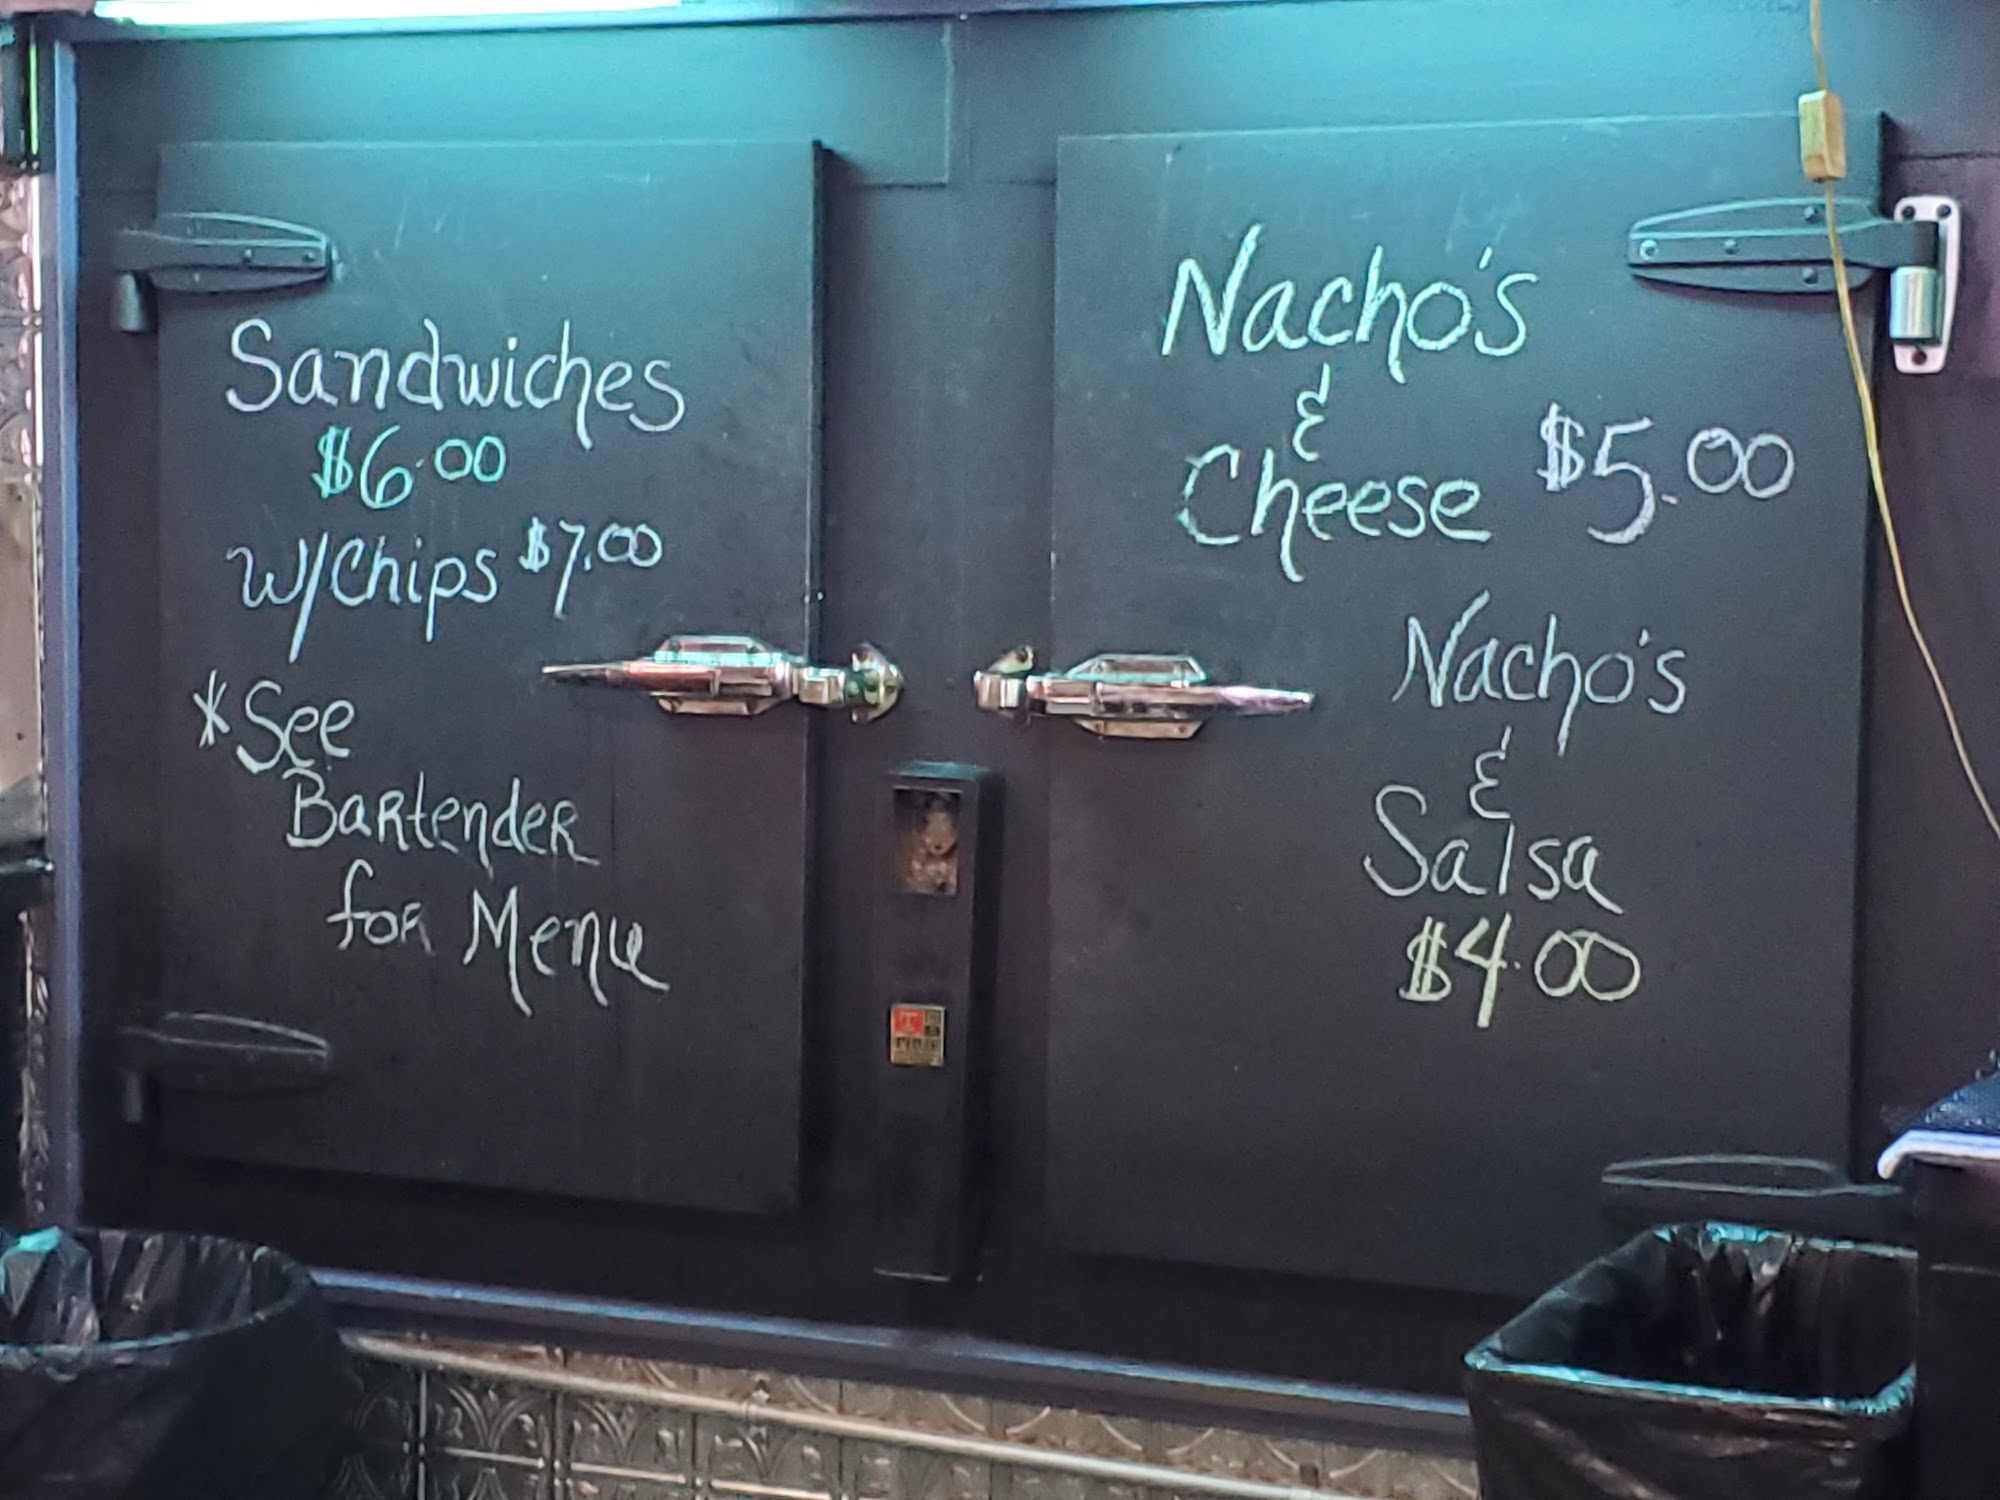 Sandwiches
$6.00
W/Chips $7.00
*See
Bartender
for Menu
Nacho's
&
Cheese $5.00
Nacho's
&
Salsa
$4.00